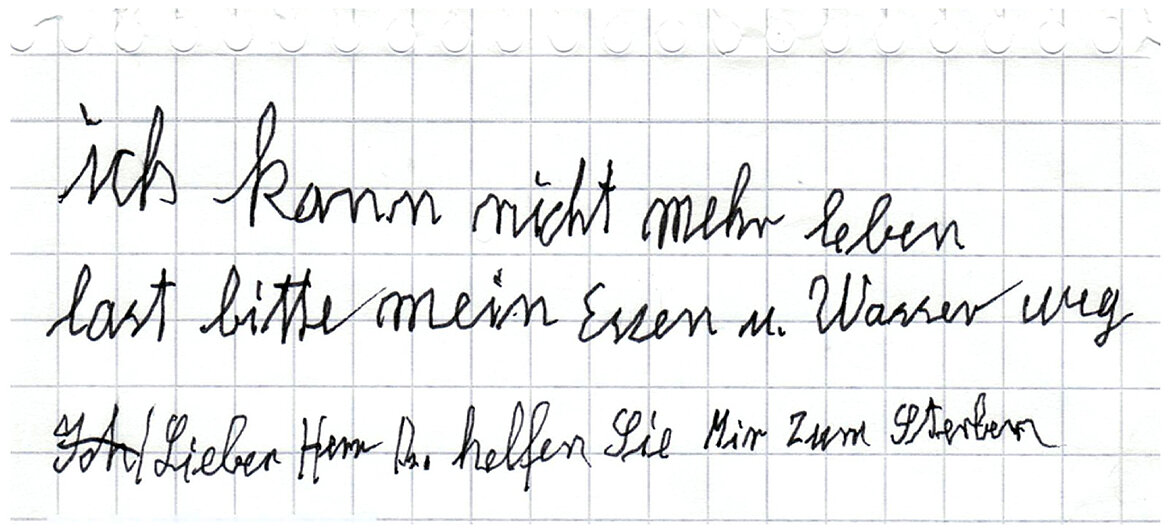 ich kann nicht mehr leben
last bitte mein Essen u. Wasser weg
Ich/Lieber Herr Dr. helfen Sie Mir zum Sterben